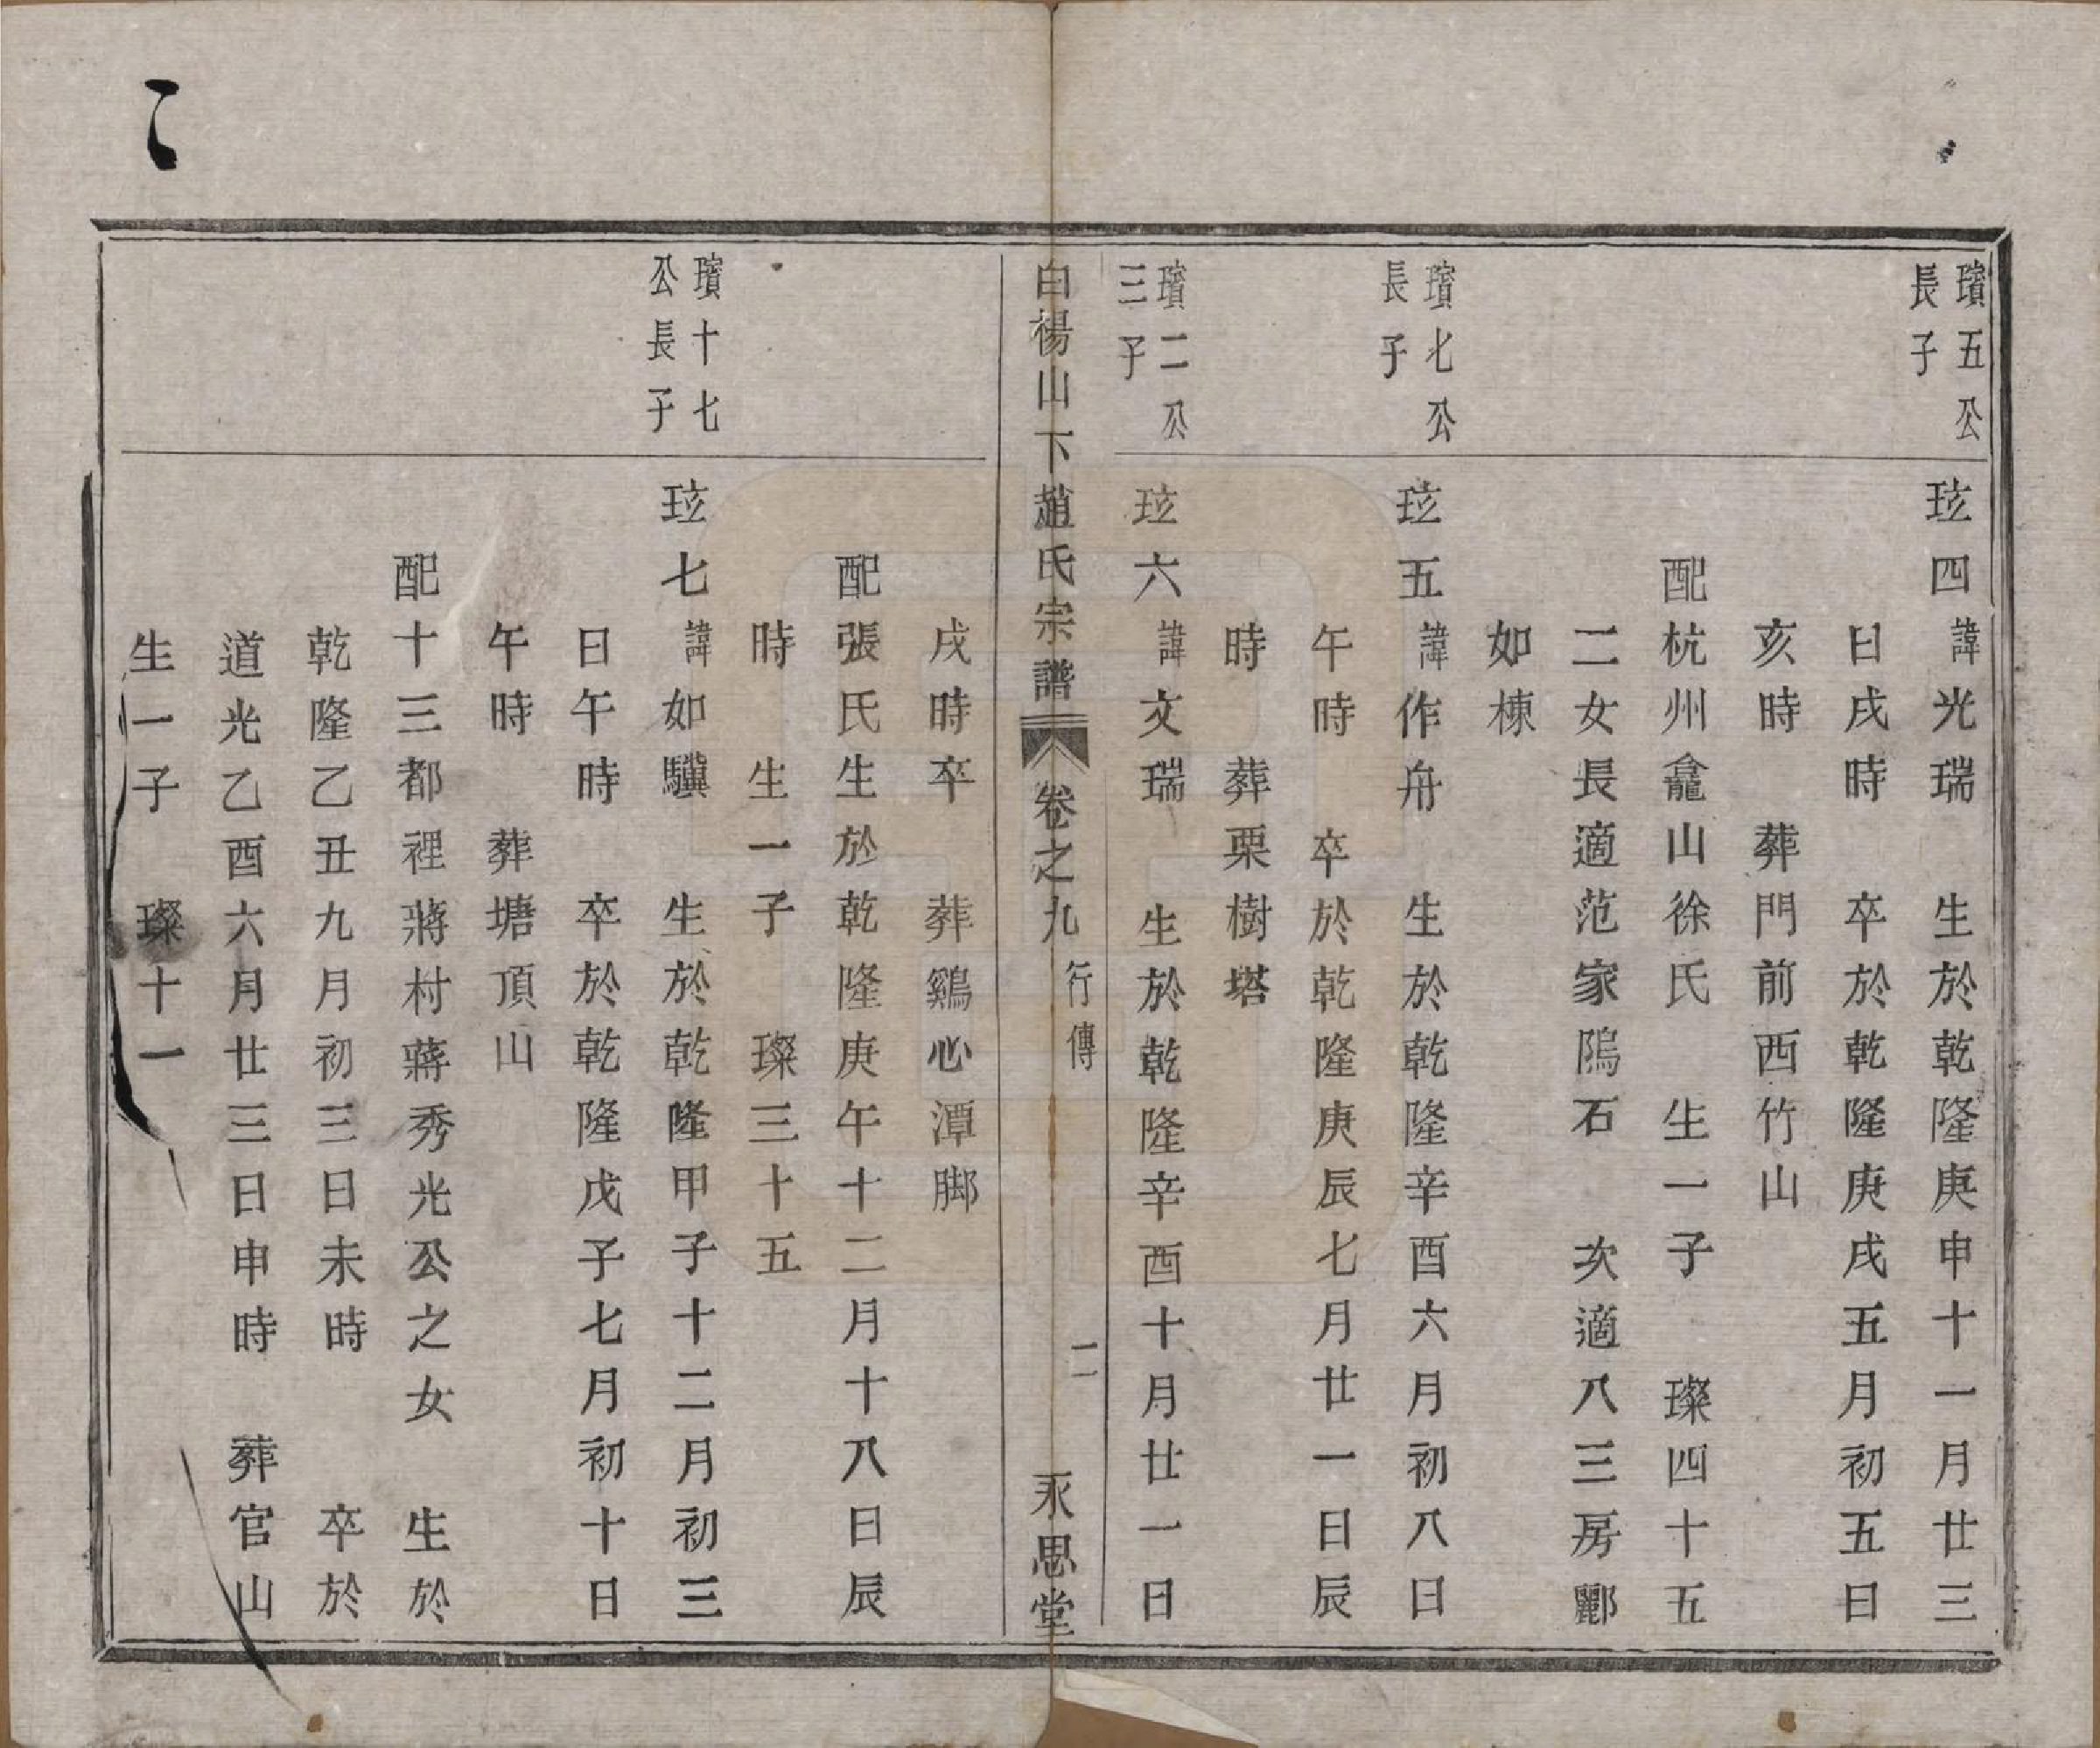 璸五公
長子
玹四 諱光瑞 生於乾隆庚申十一月廿三
日戌時 卒於乾隆庚戌五月初五日
亥時 葬門前西竹山
配杭州龕山徐氏 生一子 璨四十五
二女長適范家隖石 次適八三房酈
如棟
璸七公
長子
玹五 諱作舟 生於乾隆辛酉六月初八日
午時 卒於乾隆庚辰七月廿一日辰
時 葬栗樹塔
璸二公
三子
玹六 諱文瑞 生於乾隆辛酉十月廿一日
白楊山下趙氏宗譜 卷之九 行傳 二 永思堂
戌時卒 葬鷄心潭脚
配張氏生於乾隆庚午十二月十八日辰
時 生一子 璨三十五
璸十七
公長子
玹七 諱如驥 生於乾隆甲子十二月初三
日午時 卒於乾隆戊子七月初十日
午時 葬塘頂山
配十三都裡蔣村蔣秀光公之女 生於
乾隆乙丑九月初三日未時 卒於
道光乙酉六月廿三日申時 葬官山
生一子 璨十一